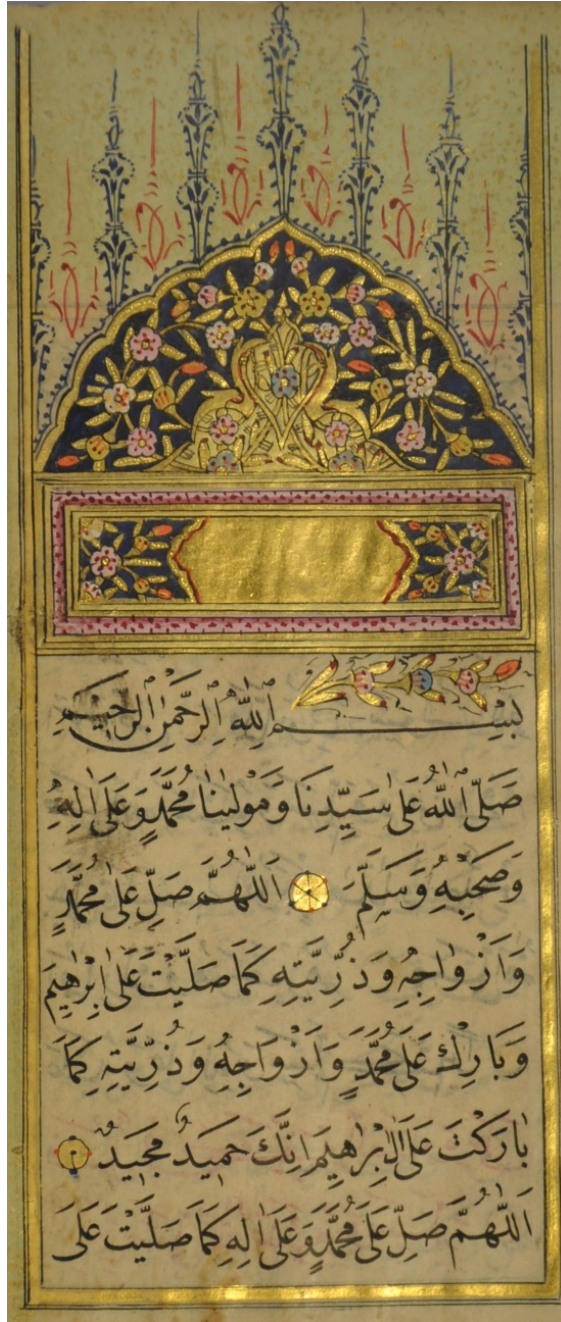 بِسْمِ اللّٰهِ الرَّحْمٰنِ الرَّحِيمِ
صَلَّى اللّٰهُ عَلٰى سَيِّدِنَا وَمَوْلٰينَا مُحَمَّدٍ وَعَلٰى اٰلِهِ
وَصَحْبِهِ وَسَلِّمَ اَللّٰهُمَّ صَلِّ عَلٰى مُحَمَّدٍ
وَاَزْوَاجِهِ وَذُرِّيَّتِهِ كَمَا صَلَّيْتَ عَلٰى اِبْرٰهِيمَ
وَبَارِكْ عَلٰى مُحَمَّدٍ وَاَزْوَاجِهِ وَذُرِّيَّتِهِ كَمَا
بَارَكْتَ عَلٰى اٰلِ اِبْرٰهِيمَ اِنَّكَ حَمِيدٌ مَجِيدٌ
اَللّٰهُمَّ صَلِّ عَلٰى مُحَمَّدٍ وَعَلٰى اٰلِهِ كَمَا صَلَّيْتَ عَلٰى